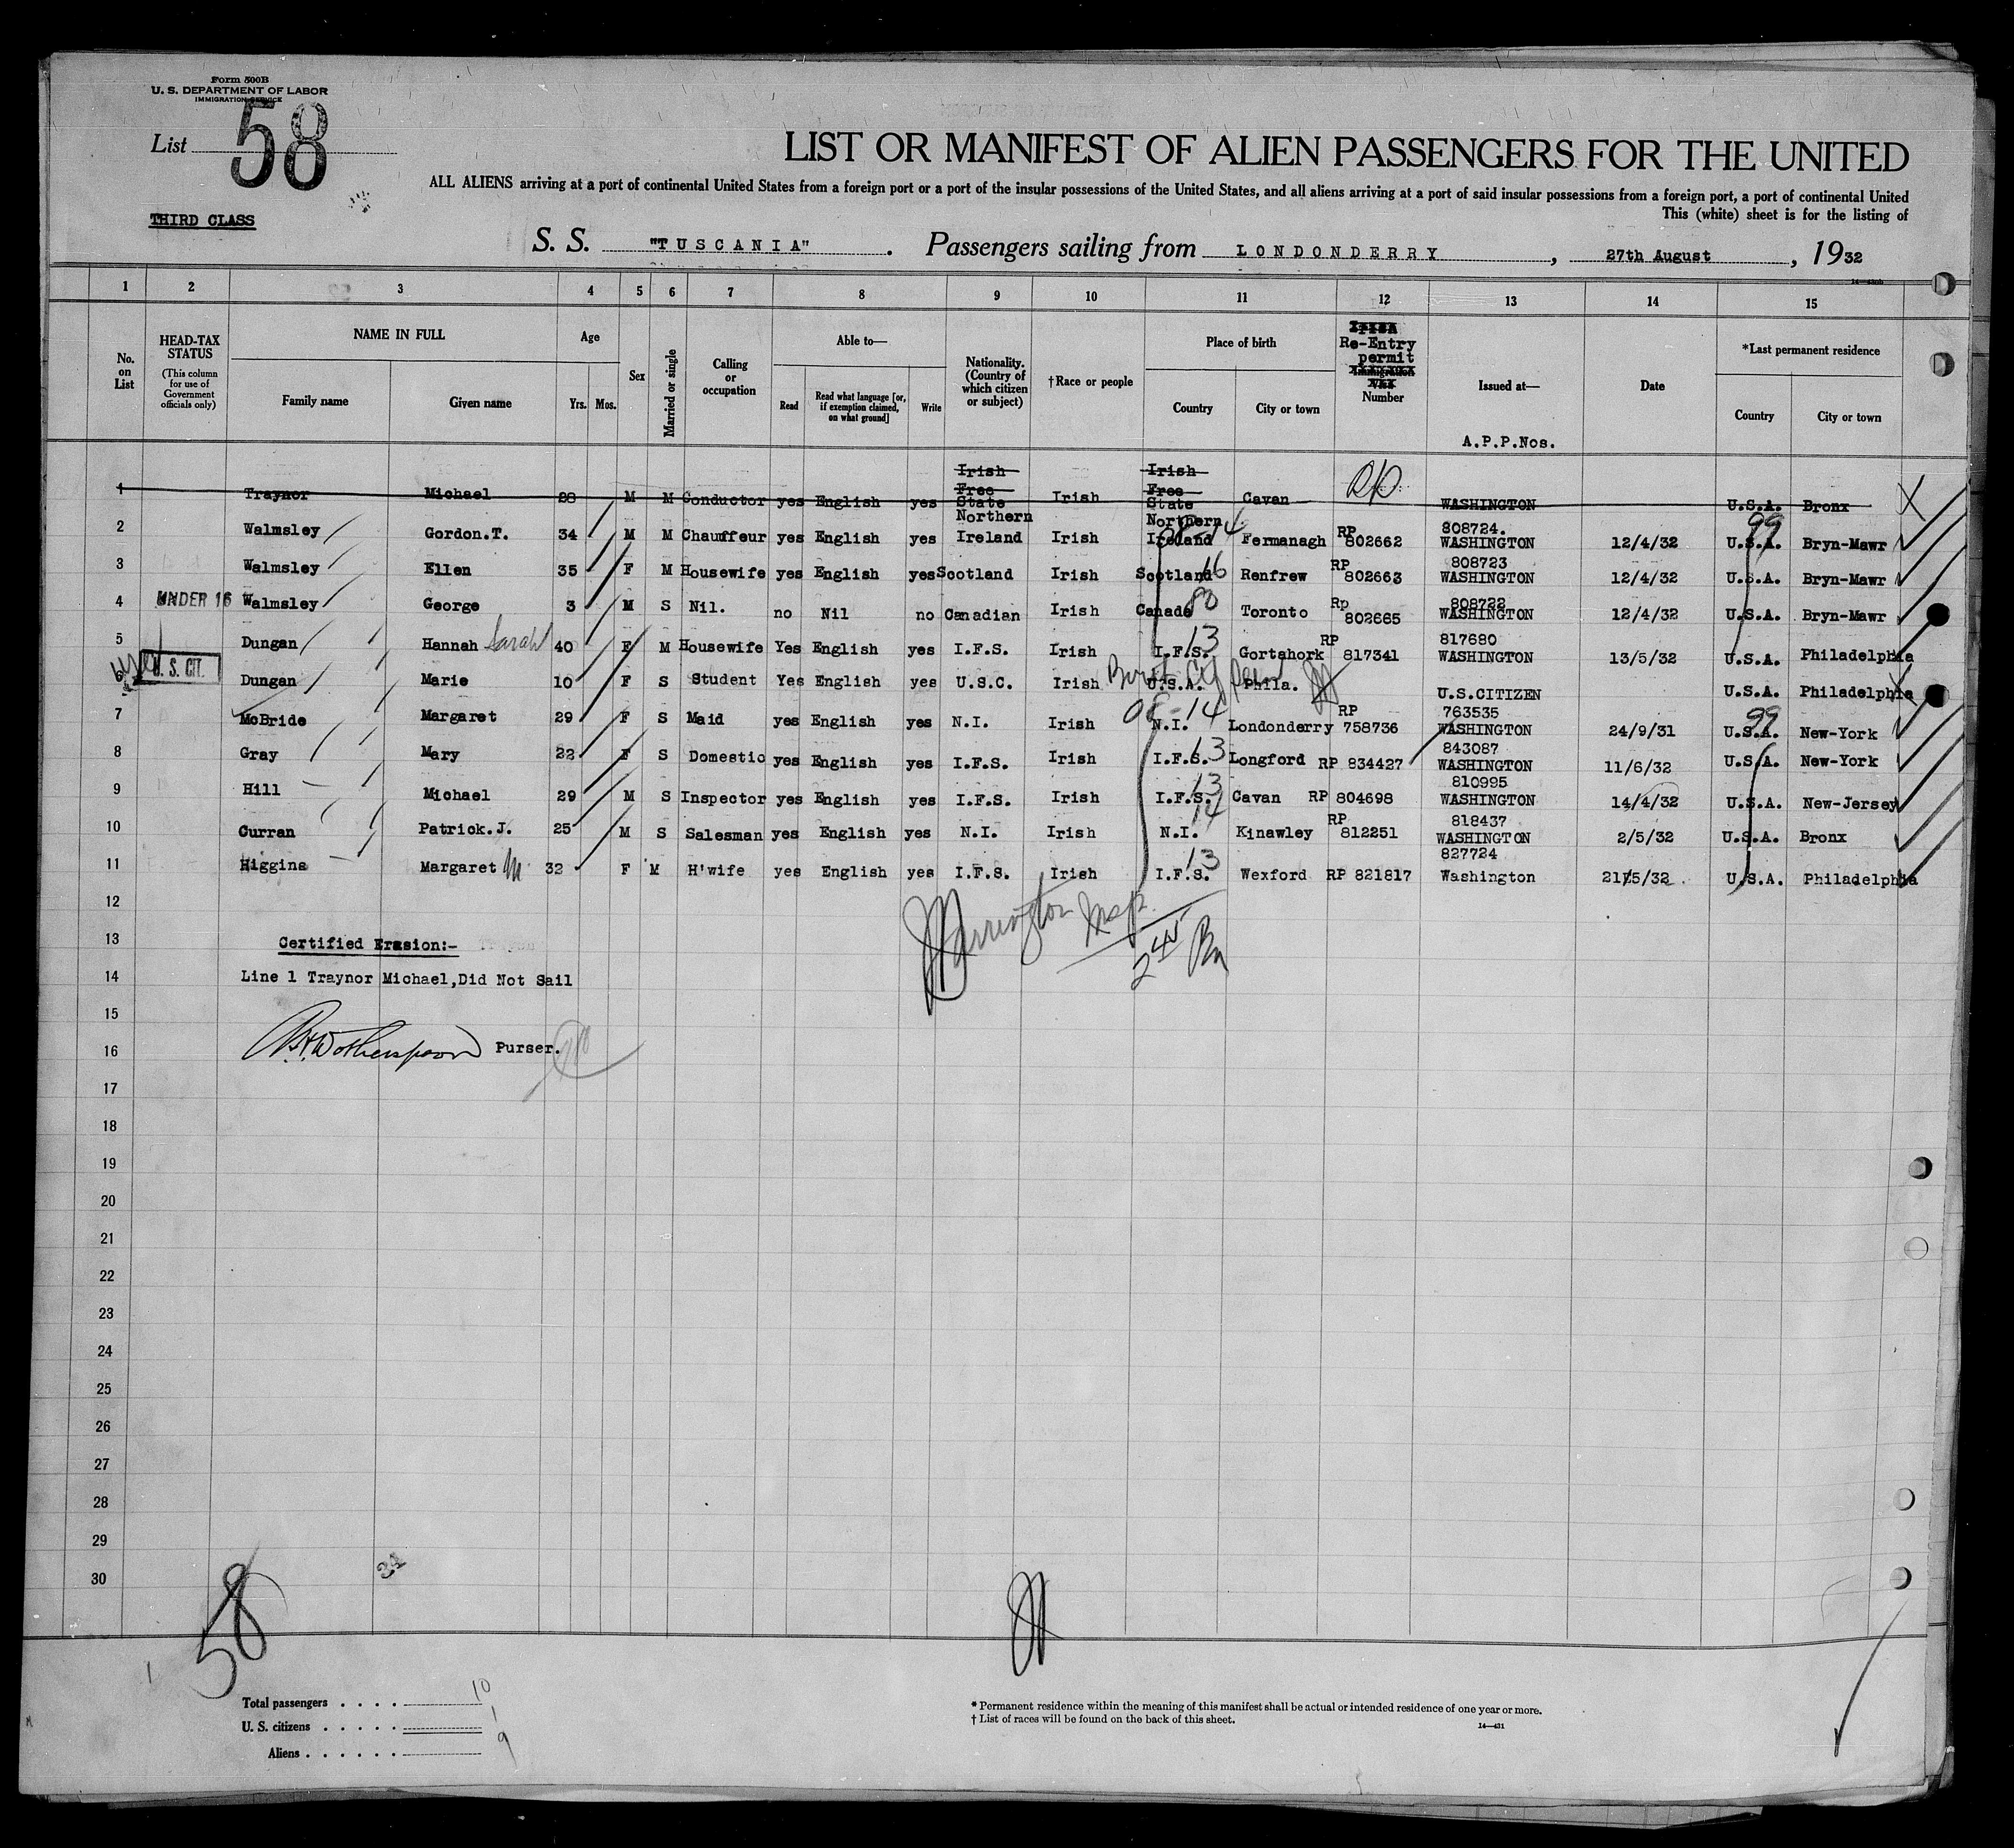 Form 500B
U. S. DEPARTMENT OF LABOR
IMMIGRATION SERVICE
List 58
LIST OR MANIFEST OF ALIEN PASSENGERS FOR THE UNITED
ALL ALIENS arriving at a port of continental United States from a foreign port or a port of the insular possessions of the United States, and all aliens arriving at a port of said insular possessions from a foreign port, a port of continental United
This (white) sheet is for the listing of
THIRD CLASS
S. S. "TUSCANIA". Passengers sailing from LONDONDERRY, 27th August, 1932
1 2 3 4 5 6 7 8 9 10 11 12 13 14 15
No. on List
HEAD-TAX STATUS
(This column for use of Government officials only)
NAME IN FULL
Family name
Given name
Age
Yrs. Mos.
Sex
Married or single
Calling or occupation
Able to—
Read
Read what language [or, if exemption claimed, on what ground]
Write
Nationality. (Country of which citizen or subject)
†Race or people
Place of birth
Country
City or town
Re-Entry permit Number
Issued at—
A.P.P.Nos.
Date
*Last permanent residence
Country
City or town
1 Traynor Michael 28 M M Conductor yes English yes Irish Free State Irish Irish Free State Cavan WASHINGTON U.S.A. Bronx X
2 Walmsley Gordon.T. 34 M M Chauffeur yes English yes Northern Ireland Irish Northern Ireland 14 Fermanagh RP 802662 808724. WASHINGTON 12/4/32 99 U.S.A. Bryn-Mawr
3 Walmsley Ellen 35 F M Housewife yes English yes Scotland Irish Scotland 16 Renfrew RP 802663 808723 WASHINGTON 12/4/32 U.S.A. Bryn-Mawr
4 UNDER 16 Walmsley George 3 M S Nil. no Nil no Canadian Irish Canada 80 Toronto Rp 802665 808722 WASHINGTON 12/4/32 U.S.A. Bryn-Mawr
5 Dungan Hannah Sarah 40 F M Housewife Yes English yes I.F.S. Irish I.F.S. 13 Gortahork RP 817341 817680 WASHINGTON 13/5/32 U.S.A. Philadelphia
6 U. S. CIT. Dungan Marie 10 F S Student Yes English yes U.S.C. Irish U.S.A. Phila. Birth Ctf U.S.CITIZEN U.S.A. Philadelphia
7 McBride Margaret 29 F S Maid yes English yes N.I. Irish N.I. 14 Londonderry RP 758736 763535 WASHINGTON 24/9/31 99 U.S.A. New-York
8 Gray Mary 22 F S Domestic yes English yes I.F.S. Irish I.F.S. 13 Longford RP 834427 843087 WASHINGTON 11/6/32 U.S.A. New-York
9 Hill Michael 29 M S Inspector yes English yes I.F.S. Irish I.F.S. 13 Cavan RP 804698 810995 WASHINGTON 14/4/32 U.S.A. New-Jersey
10 Curran Patrick.J. 25 M S Salesman yes English yes N.I. Irish N.I. 14 Kinawley RP 812251 818437 WASHINGTON 2/5/32 U.S.A. Bronx
11 Higgins Margaret M 32 F M H'wife yes English yes I.F.S. Irish I.F.S. 13 Wexford RP 821817 827724 Washington 21/5/32 U.S.A. Philadelphia
12
13 Certified Erasion:-
14 Line 1 Traynor Michael,Did Not Sail
15
16 Wotherspoon Purser.
Insp.
245 Pm
17
18
19
20
21
22
23
24
25
26
27
28
29
30
34
58
Total passengers . . . . 10
U. S. citizens . . . . . 1
Aliens . . . . . . 9
* Permanent residence within the meaning of this manifest shall be actual or intended residence of one year or more.
† List of races will be found on the back of this sheet.
14—431